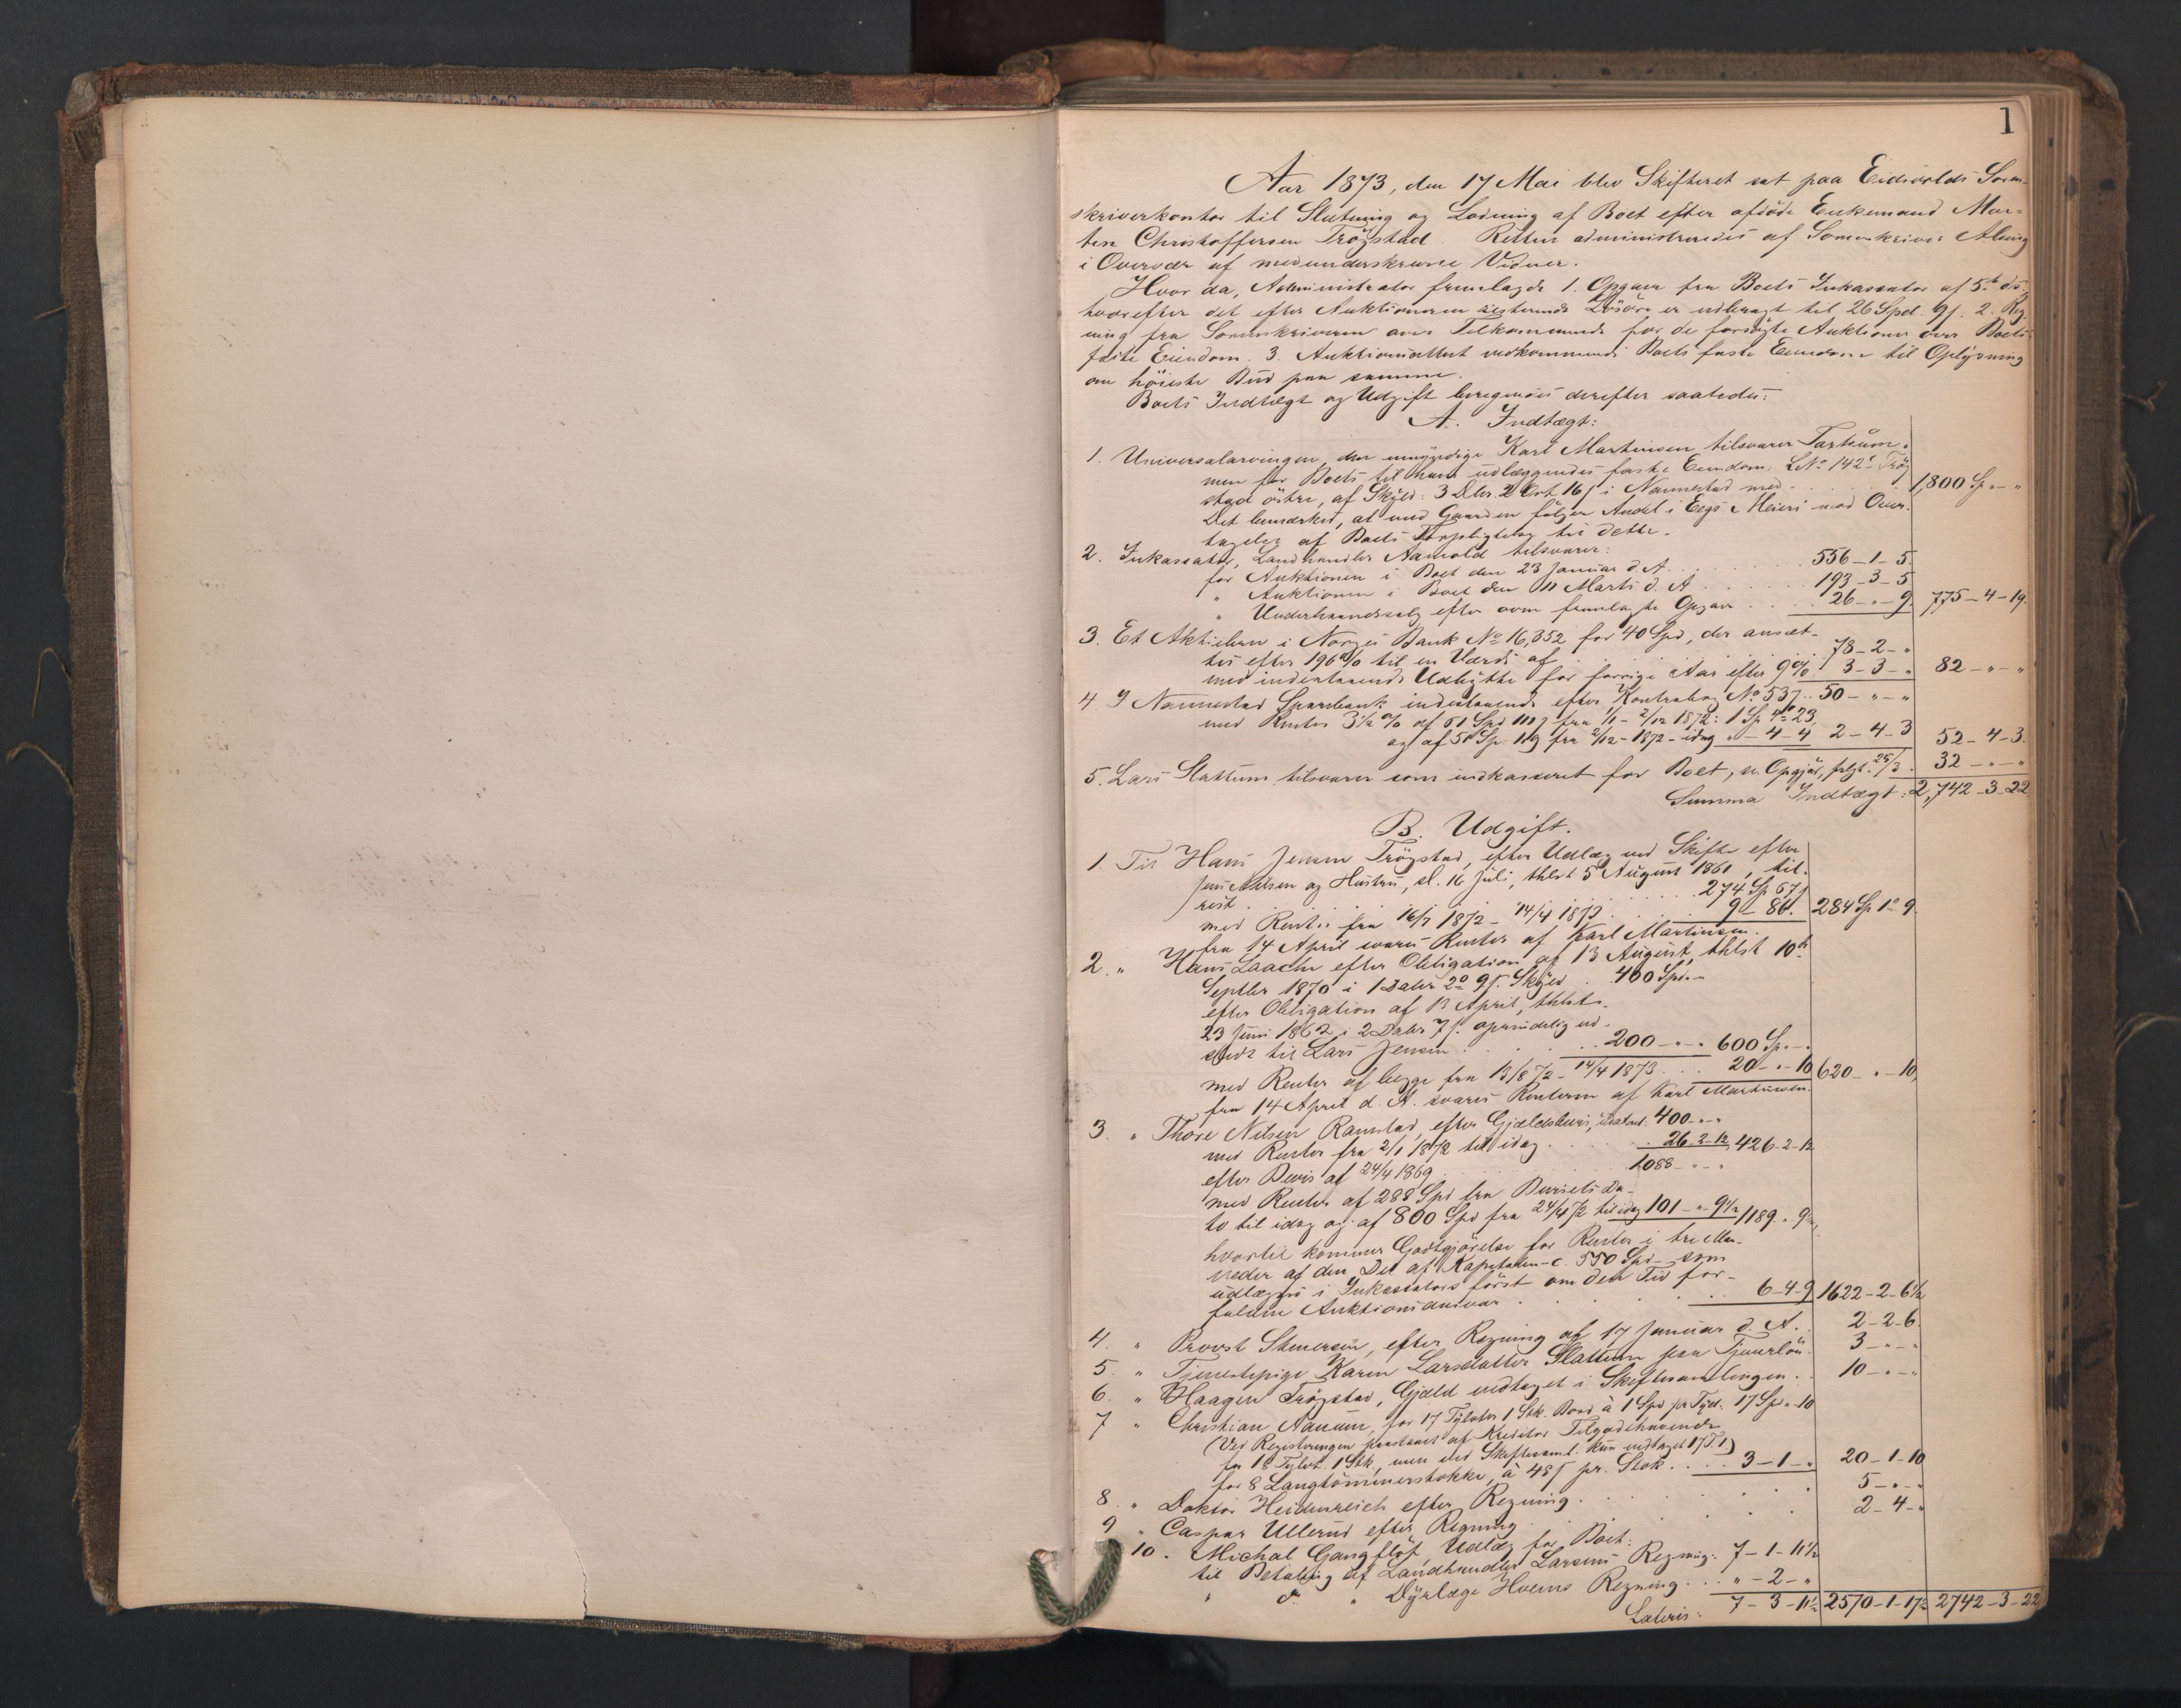 1
Aar 1873, den 17 Mai blev Skifteret sat paa Eidsvolds Soren-
skriverkontor til Slutning og Lodning af Boet efter afdøde Enkemand Mar-
tin Christoffersen Trøgstad. Retten administreredes af Sorenskriver Alsing
i Overvær af medunderskrevne Vidner.
Hvor da, Administrator fremlagde 1. Opgave fra Boets Inkassator af 5te ds.
hvorefter det efter Auktionerne resterende Løsøre er udbragt til 26 Spd. 9 s. 2. Reg-
ning fra Sorenskriveren over Tilkommende for de forsøgte Auktioner over Boets
faste Eiendom. 3. Auktionsattest vedkommende Boets faste Eiendom til Oplysning
om høieste Bud paa samme.
Boets Indtægt og Udgift beregnes derefter saaledes:
A. Indtægt:
1. Universalarvingen, den umyndige Karl Martinsen tilsvarer Taxtsum-
men for Boets til ham udlæggendes faste Eiendom: LNo 142c Trøg-
stad østre, af Skyld: 3 Dlr. 2 Ort 16 s i Nannestad med . . . 1,800 Sp. " - "
Det bemærkes, at med Gaarden følger Andel i Eegs Meieri mod Over-
tagelse af Boets Forpligtelse til dette.
2. Inkassator, Landhandler Aamold tilsvarer:
for Auktionen i Boet den 23 Januar d. A. . . . 556 - 1 - 5
" Auktionen i Boet den 11 Marts d. A. . . . 193 - 3 - 5
" Underhaandssalg efter ovm. fremlagte Opgave . . . 26 - " - 9. 775 - 4 - 19.
3. Et Aktiebrev i Norges Bank No 16,352 for 40 Spd, der ansæt-
tes efter 196% til en Værdi af 78 - 2 - "
med indestaaende Udbytte for forrige Aar efter 9% 3 - 3 - " 82 - " - "
4. I Nannestad Sparebank indestaaende efter Kontrabog No 537 . . 50 - " - "
med Renter 3½ % af 51 Spd 119 s fra 1/1 - 2/12 1872: 1 Sp 4o 23
og af 50 Sp. 119 fra 2/12 - 1872 - idag " - 4 - 4 2 - 4 - 3 52 - 4 - 3.
5. Lars Slattum tilsvarer som indkasseret for Boet, se Opgjør, frlgt. 25/3 . 32 - " - "
Summa Indtægt: 2,742 - 3 - 22
B. Udgift.
1. Til Hans Jensen Trøgstad, efter Udlæg ved Skifte efter
Jens Nilsen og Hustru, sl. 16 Juli, thlst 5 August 1861, til-
rest . . . 274 Sp 67 s
med Renter fra 16/7 1872 - 14/4 1873 . . . 9 - 86. 284 Sp 1o 9
fra 14 April svares Renter af Karl Martinsen.
2. " Hans Laache efter Obligation af 13 August, thlst 10de
Septbr 1870 i 1 Daler 2o 9 s. Skyld . 400 Spd. -
efter Obligation af 13 April, thlst.
23 Juni 1862 i 2 Daler 7 s. oprindelig ud-
stedt til Lars Jensen . . . 200 - " - " 600 Sp. - "
med Renter af begge fra 13/8 72 - 14/4 1873 . . . 20 - " - 10 620 - " - 10,
fra 14 April d. A. svares Renterne af Karl Martinsen.
3. " Thore Nilsen Ramstad, efter Gjældsbevis, 400 - " - "
med Renter fra 2/1 1872 til idag . . . 26 - 2 - 12, 426 - 2 - 12
efter Bevis af 24/4 1869 . . . 1088 - " - "
med Renter af 288 Spd fra Bevisets Da-
to til idag og af 800 Spd fra 24/4 72 til idag 101 - " - 9½ 1189 " 9½
hvortil kommer Godtgjørelse for Renter i tre Maa-
neder af den Del af Kapitalen - c. 550 Spd - som
udlægges i Inkassators først om den Tid for-
faldne Auktionsansvar . . . 6 - 4 - 9 1622 - 2 - 6½
4. " Provst Stenersen, efter Regning af 17 Januar d. A. . 2 - 2 - 6
5. " Tjenestepige Karen Larsdatter Slattum paa Tjenerløn. 3 - " - "
6. " Haagen Trøgstad, Gjæld vedtaget i Skiftesamlingen . . 10 - " - "
7 " Christian Naum, for 17 Tylvter 1 Stk. Bord à 1 Spd pr Tylvt. 17 Spd " 10
(Ved Registreringen paastaaet af Kreditor Tilgodehavende
for 18 Tylvt. 1 Stk, men ved Skiftesaml. kun vedtaget 17 T. 1)
for 8 Langtømmerstokke, à 48 s pr. Stok . . . 3 - 1 - " 20 - 1 - 10
8. " Doktor Heidenreich efter Regning . . . 5 - " - "
9 " Caspar Ullerud efter Regning . . . 2 - 4 - "
10. " Michal Gangfløt, Udlæg for Boet:
til Betaling af Landhandler Larsens Regning. 7 - 1 - 11½
" do " Dyrlæge Hvems Regning . . . " - 2 - "
Lateris: 7 - 3 - 11½ 2570 - 1 - 17½ 2742 - 3 - 22